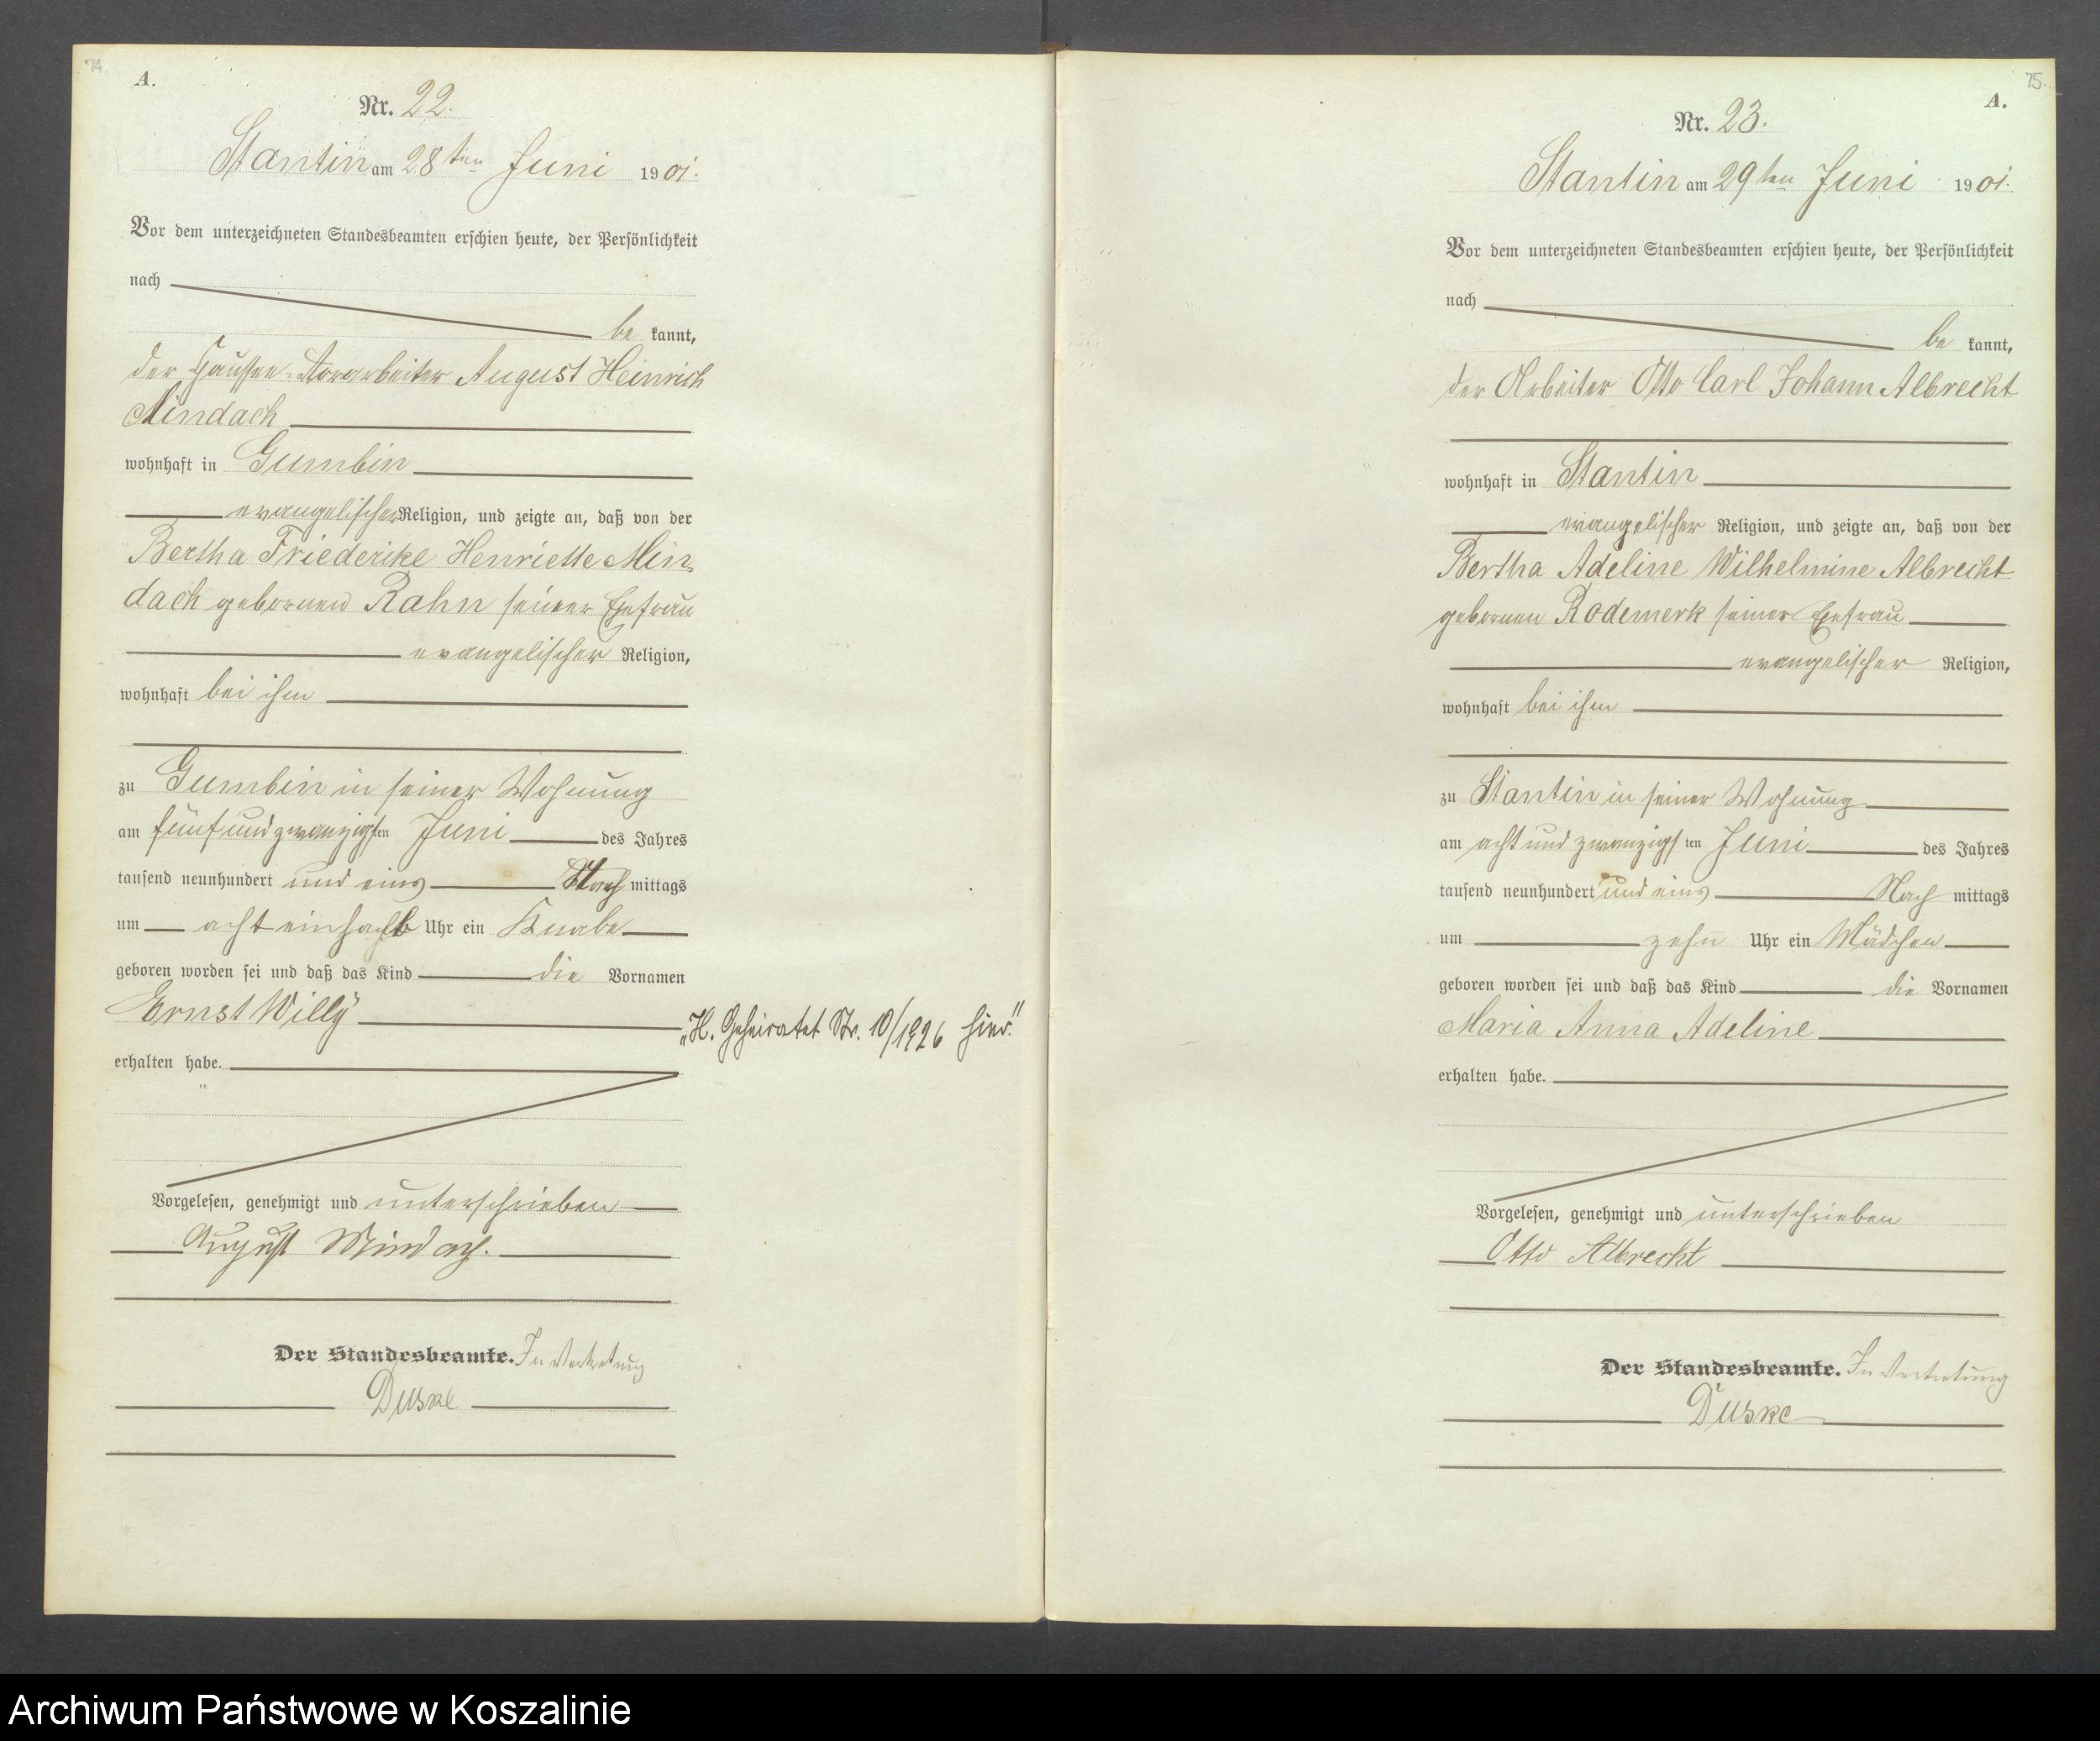 74.
A.
Nr. 22.
Stantin am 28ten Juni 1901.
Vor dem unterzeichneten Standesbeamten erschien heute, der Persönlichkeit
nach
be kannt,
der Chaussee-Vorarbeiter August Heinrich
Mindach
wohnhaft in Gumbin
evangelischer Religion, und zeigte an, daß von der
Bertha Friederike Henriette Min-
dach gebornen Rahn seiner Ehefrau
evangelischer Religion,
wohnhaft bei ihm
zu Gumbin in seiner Wohnung
am fünfundzwanzigsten Juni des Jahres
tausend neunhundert und eins Nach mittags
um acht einhalb Uhr ein Knabe
geboren worden sei und daß das Kind die Vornamen
Ernst Willy
„H. Geheiratet Nr. 10/1926 hier."
erhalten habe.
Vorgelesen, genehmigt und unterschrieben
August Mindach.
Der Standesbeamte. In Vertretung
Duske
75.
A.
Nr. 23.
Stantin am 29ten Juni 1901.
Vor dem unterzeichneten Standesbeamten erschien heute, der Persönlichkeit
nach
be kannt,
der Arbeiter Otto Carl Johann Albrecht
wohnhaft in Stantin
evangelischer Religion, und zeigte an, daß von der
Bertha Adeline Wilhelmine Albrecht
gebornen Rodemerk seiner Ehefrau
evangelischer Religion,
wohnhaft bei ihm
zu Stantin in seiner Wohnung
am achtundzwanzigsten Juni des Jahres
tausend neunhundert und eins Nach mittags
um zehn Uhr ein Mädchen
geboren worden sei und daß das Kind die Vornamen
Maria Anna Adeline
erhalten habe.
Vorgelesen, genehmigt und unterschrieben
Otto Albrecht
Der Standesbeamte. In Vertretung
Duske
Archiwum Państwowe w Koszalinie